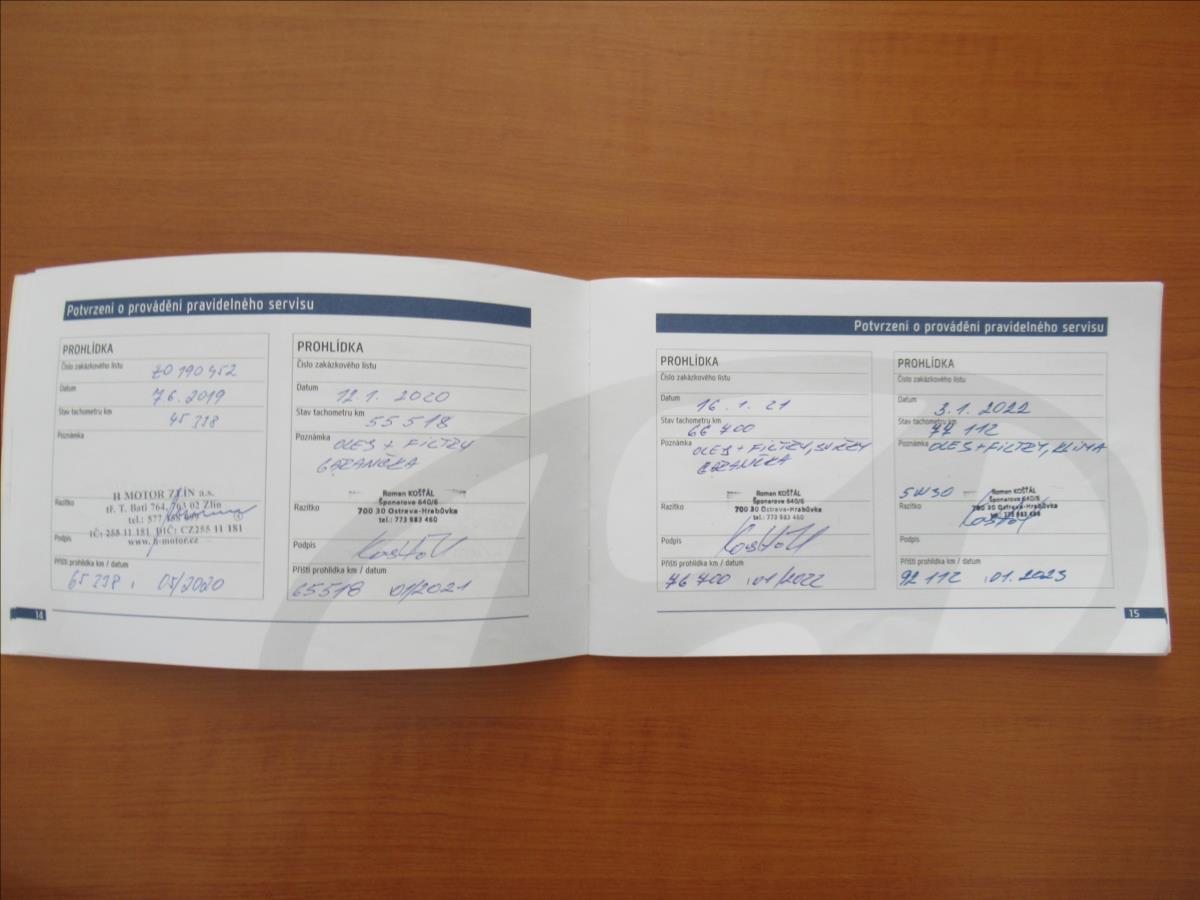 Potvrzení o provádění pravidelného servisu
PROHLÍDKA
Číslo zakázkového listu
ZO 190 452
Datum
7.6. 2019
Stav tachometru km
Poznámka
Razítko
H MOTOR ZLÍN a.s.
tř. T. Bati 764, 763 02 Zlín
tel.: 577
IČ: 255 11 181 DIČ: CZ255 11 181
www.h-motor.cz
Podpis
Příští prohlídka km / datum
05/2020
14
PROHLÍDKA
Číslo zakázkového listu
Datum
12.1. 2020
Stav tachometru km
55 518
Poznámka
OLEJ + FILTRY
Razítko
Roman KOŠŤÁL
Šponarova 640/6
700 30 Ostrava-Hrabůvka
tel.: 773 983 460
Podpis
Příští prohlídka km / datum
65518 01/2021
Potvrzení o provádění pravidelného servisu
PROHLÍDKA
Číslo zakázkového listu
Datum
16.1.21
Stav tachometru km
66 700
Poznámka
OLEJ + FILTRY,
Razítko
Roman KOŠŤÁL
Šponarova 640/6
700 30 Ostrava-Hrabůvka
tel.: 773 983 460
Podpis
Příští prohlídka km / datum
76 700 01/2022
PROHLÍDKA
Číslo zakázkového listu
Datum
3.1. 2022
Stav tachometru km
77 112
Poznámka
OLEJ + FILTRY, KLIMA
5W30
Razítko
Roman KOŠŤÁL
Šponarova 640/6
700 30 Ostrava-Hrabůvka
Podpis
Příští prohlídka km / datum
92 112 01.2023
15